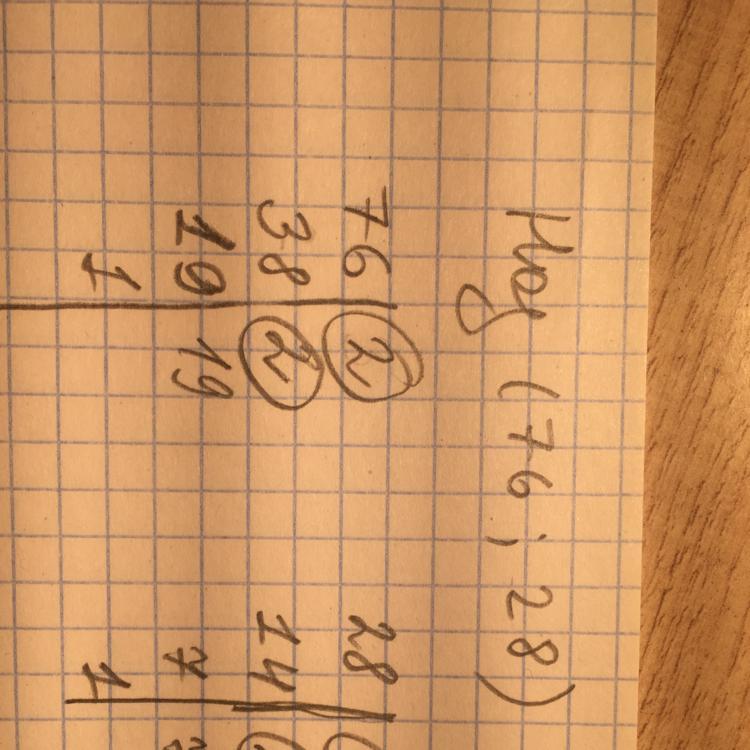 Нод (76; 28)
76 | 2
38 | 2
19 | 19
1
28
14
7
1